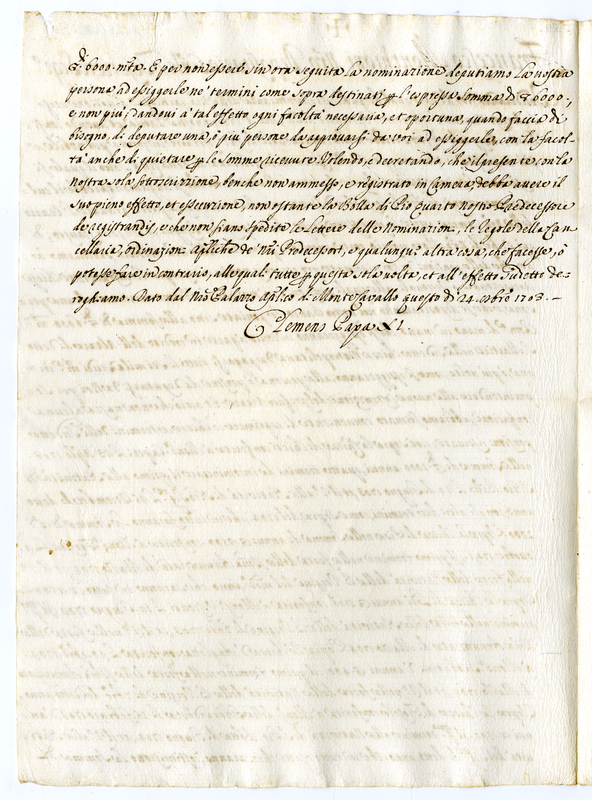 di 6000 m.ta. E per non essere sin'ora seguita la nominazione deputiamo la vostra
persona ad essiggerle ne' termini come sopra destinati p l'espressa somma di 6000,
e non più, dandovi a' tal effetto ogni facoltà necessaria, et oportuna, quando faccia di
bisogno di deputare una, ò più persone da approvarsi da voi ad essiggerle, con la facol-
tà anche di quietare p le somme ricevute. Volendo, e decretando, che il presente con la
nostra sola sottoscrizzione, benche non ammesso, e registrato in Camera, debba avere il
suo pieno effetto, et essecuzione, non ostante la Bolla di Pio Quarto nostro Predecessore
de registrandis, e che non siano spedite le Lettere delle Nominazioni, le Regole della Can-
cellaria, ordinazioni Apliche de' nri Predecessori, e qualunque altra cosa, che facesse, ò
potesse fare in contrario, alle quali tutte p questa sol volta, et all'effetto sudetto de-
roghiamo. Dato dal nro Palazzo Aplico di Monte Cavallo questo dì 24. 1703. —
Clemens Papa XI.